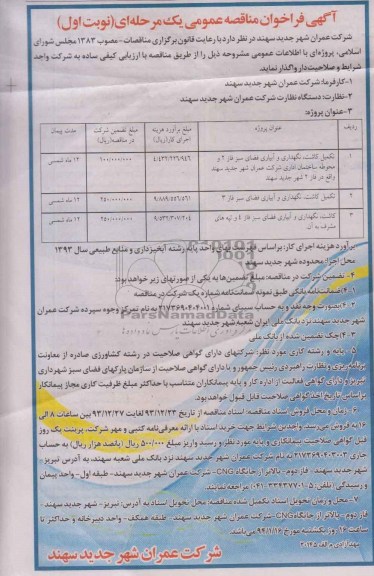 آگهی فراخوان مناقصه عمومی یک مرحله‌ای (نوبت اول)
شرکت عمران شهر جدید سهند در نظر دارد با رعایت قانون برگزاری مناقصات - مصوب ۱۳۸۳ مجلس شورای
اسلامی، پروژه‌ای با اطلاعات عمومی مشروحه ذیل را از طریق مناقصه با ارزیابی کیفی ساده به شرکت واجد
شرایط و صلاحیت‌دار واگذار نماید.
۱- کارفرما: شرکت عمران شهر جدید سهند
۲- نظارت: دستگاه نظارت شرکت عمران شهر جدید سهند
۳- عنوان پروژه:
ردیف عنوان پروژه مبلغ برآورد هزینه اجرای کار (ریال) مبلغ تضمین شرکت در مناقصه (ریال) مدت پیمان
۱ تکمیل کاشت، نگهداری و آبیاری فضای سبز فاز ۲ و محوطه ساختمان اداری شرکت عمران شهر جدید سهند واقع در فاز ۲ شهر جدید سهند ۱۲ ماه شمسی
۲ تکمیل کاشت، نگهداری و آبیاری فضای سبز فاز ۳ ۱۲ ماه شمسی
۳ کاشت، نگهداری و آبیاری فضای سبز فاز ۴ و تپه های مشرف به آن ۱۲ ماه شمسی
برآورد هزینه اجرای کار: براساس فهرست بهای واحد پایه رشته آبخیزداری و منابع طبیعی سال ۱۳۹۳
محل اجرا: محدوده شهر جدید سهند
۴- تضمین شرکت در مناقصه: مبلغ تضمین‌ها به یکی از صورتهای زیر خواهد بود:
۴-۱ ضمانت‌نامه بانکی طبق نمونه ضمانت‌نامه شماره یک شرکت در مناقصه
۴-۲ بصورت وجه نقد و به حساب سیبای شماره به نام تمرکز وجوه سپرده شرکت عمران
شهر جدید سهند نزد بانک ملی ایران شعبه شهر جدید سهند
۴-۳ چک تضمین شده از بانک ملی
۵- پایه و رشته کاری مورد نظر: شرکتهای دارای گواهی صلاحیت در رشته کشاورزی صادره از معاونت
برنامه‌ریزی و نظارت راهبردی رئیس جمهور و یا دارای گواهی صلاحیت از سازمان پارکهای فضای سبز شهرداری
تبریز و دارای گواهی فعالیت از اداره کار و پایه پیمانکاران متناسب با حداکثر مبلغ ظرفیت کاری مجاز پیمانکار
براساس تاریخ اخذ گواهی صلاحیت قابل قبول خواهد بود.
۶- زمان و محل فروش اسناد مناقصه: اسناد مناقصه از تاریخ ۹۳/۱۲/۲۳ لغایت ۹۳/۱۲/۲۷ بین ساعات ۸ الی
۱۶ به فروش می‌رسد. واجدین شرایط جهت خرید اسناد با ارائه معرفی‌نامه کتبی و مهر شرکت، پرینت یک روز
قبل گواهی صلاحیت پیمانکاری و پایه مورد نظر و رسید واریز مبلغ ۵۰۰/۰۰۰ ریال (پانصد هزار ریال) به حساب
جاری به نام شرکت عمران شهر جدید سهند نزد بانک ملی شعبه سهند، به آدرس تبریز -
شهر جدید سهند - فاز دوم - بالاتر از جایگاه CNG - شرکت عمران شهر جدید سهند - طبقه اول - واحد پیمان
و رسیدگی (تلفن: ۵-۰۴۱-۳۳۴۴۳۷۷۰) مراجعه نمایند.
۷- محل و زمان تحویل اسناد تکمیل شده مناقصه: محل تحویل اسناد به آدرس: تبریز - شهر جدید سهند -
فاز دوم - بالاتر از جایگاه CNG - شرکت عمران شهر جدید سهند - طبقه همکف - واحد دبیرخانه و حداکثر تا
ساعت ۱۶ روز یکشنبه مورخ ۹۴/۱/۱۶ می‌باشد.
شرکت عمران شهر جدید سهند